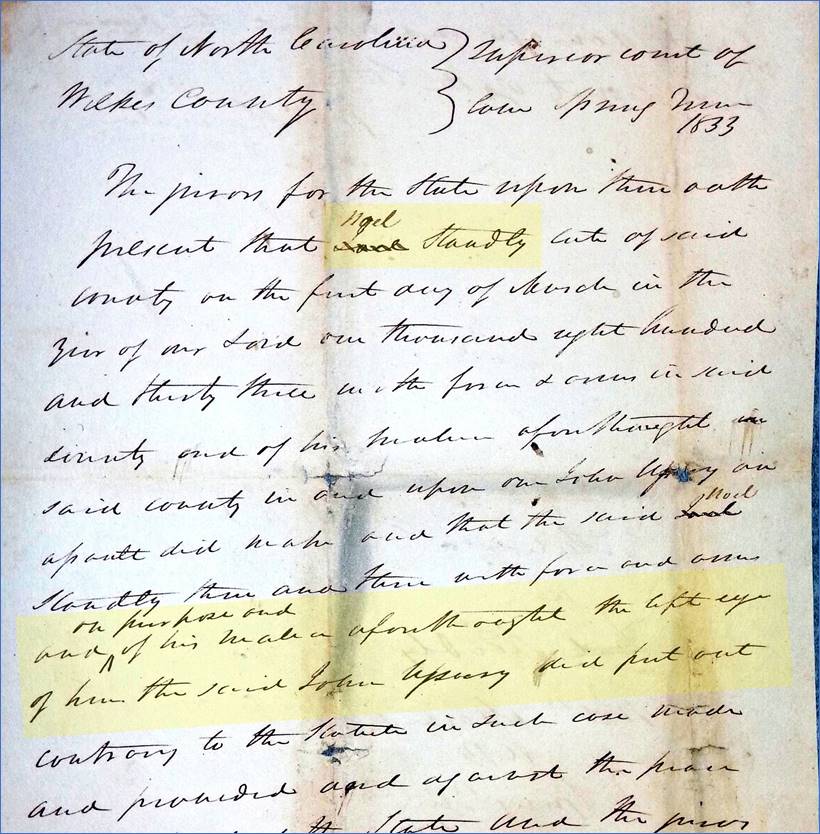 State of North Carolina } Superior court of
Wilkes County } Law Spring Term
1833
The jurors for the State upon their oath
Noel
present that Standly late of said
county on the first day of March in the
year of our Lord one thousand eight hundred
and thirty three with force & arms in said
county and of his malice aforethought in
said county in and upon one John Upsury an
Noel
assault did make and that the said
Standly then and there with force and arms
on purpose and
and ^ of his malice aforethought the left eye
of him the said John Upsury did put out
contrary to the Statute in such case made
and provided and against the peace
the State and the jurors